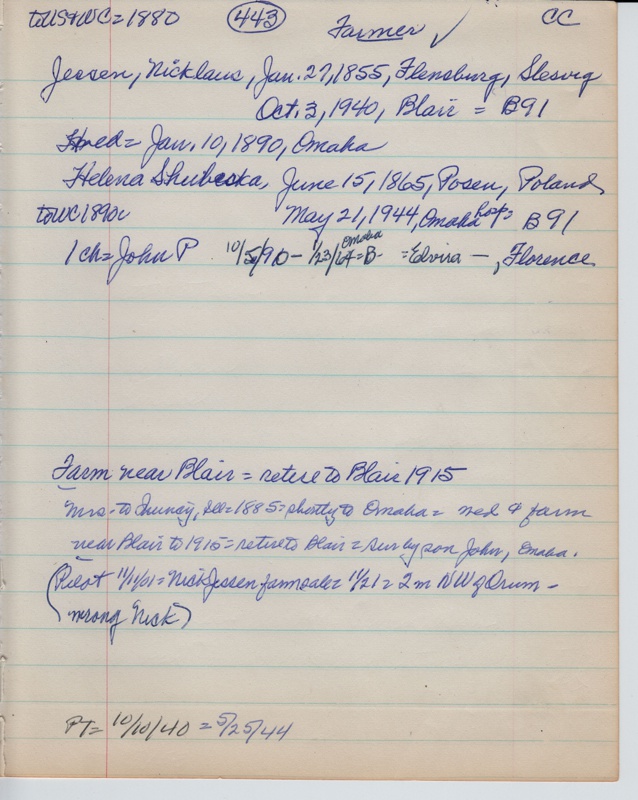 to US & WC = 1880 443 Farmer ✓ CC
Jessen, Nicklaus, Jan. 27, 1855, Flensburg, Slesvig
Oct. 3, 1940, Blair = B91
wed = Jan. 10, 1890, Omaha
Helena Shubeska, June 15, 1865, Posen, Poland
to WC 1890 May 21, 1944, Omaha hosp = B91
1 ch = John P 10/5/90 - 1/23/64 = B- Omaha = Elvira — , Florence
Farm near Blair = retire to Blair 1915
Mrs - to Ill = 1885 = shortly to Omaha = wed & farm
near Blair to 1915 = retire to Blair = sur by son John, Omaha.
(Pilot 11/11/01 = Nick Jessen farm sale = 11/21 = 2 m NW of Orum -
wrong Nick)
PT = 10/10/40 = 5/25/44